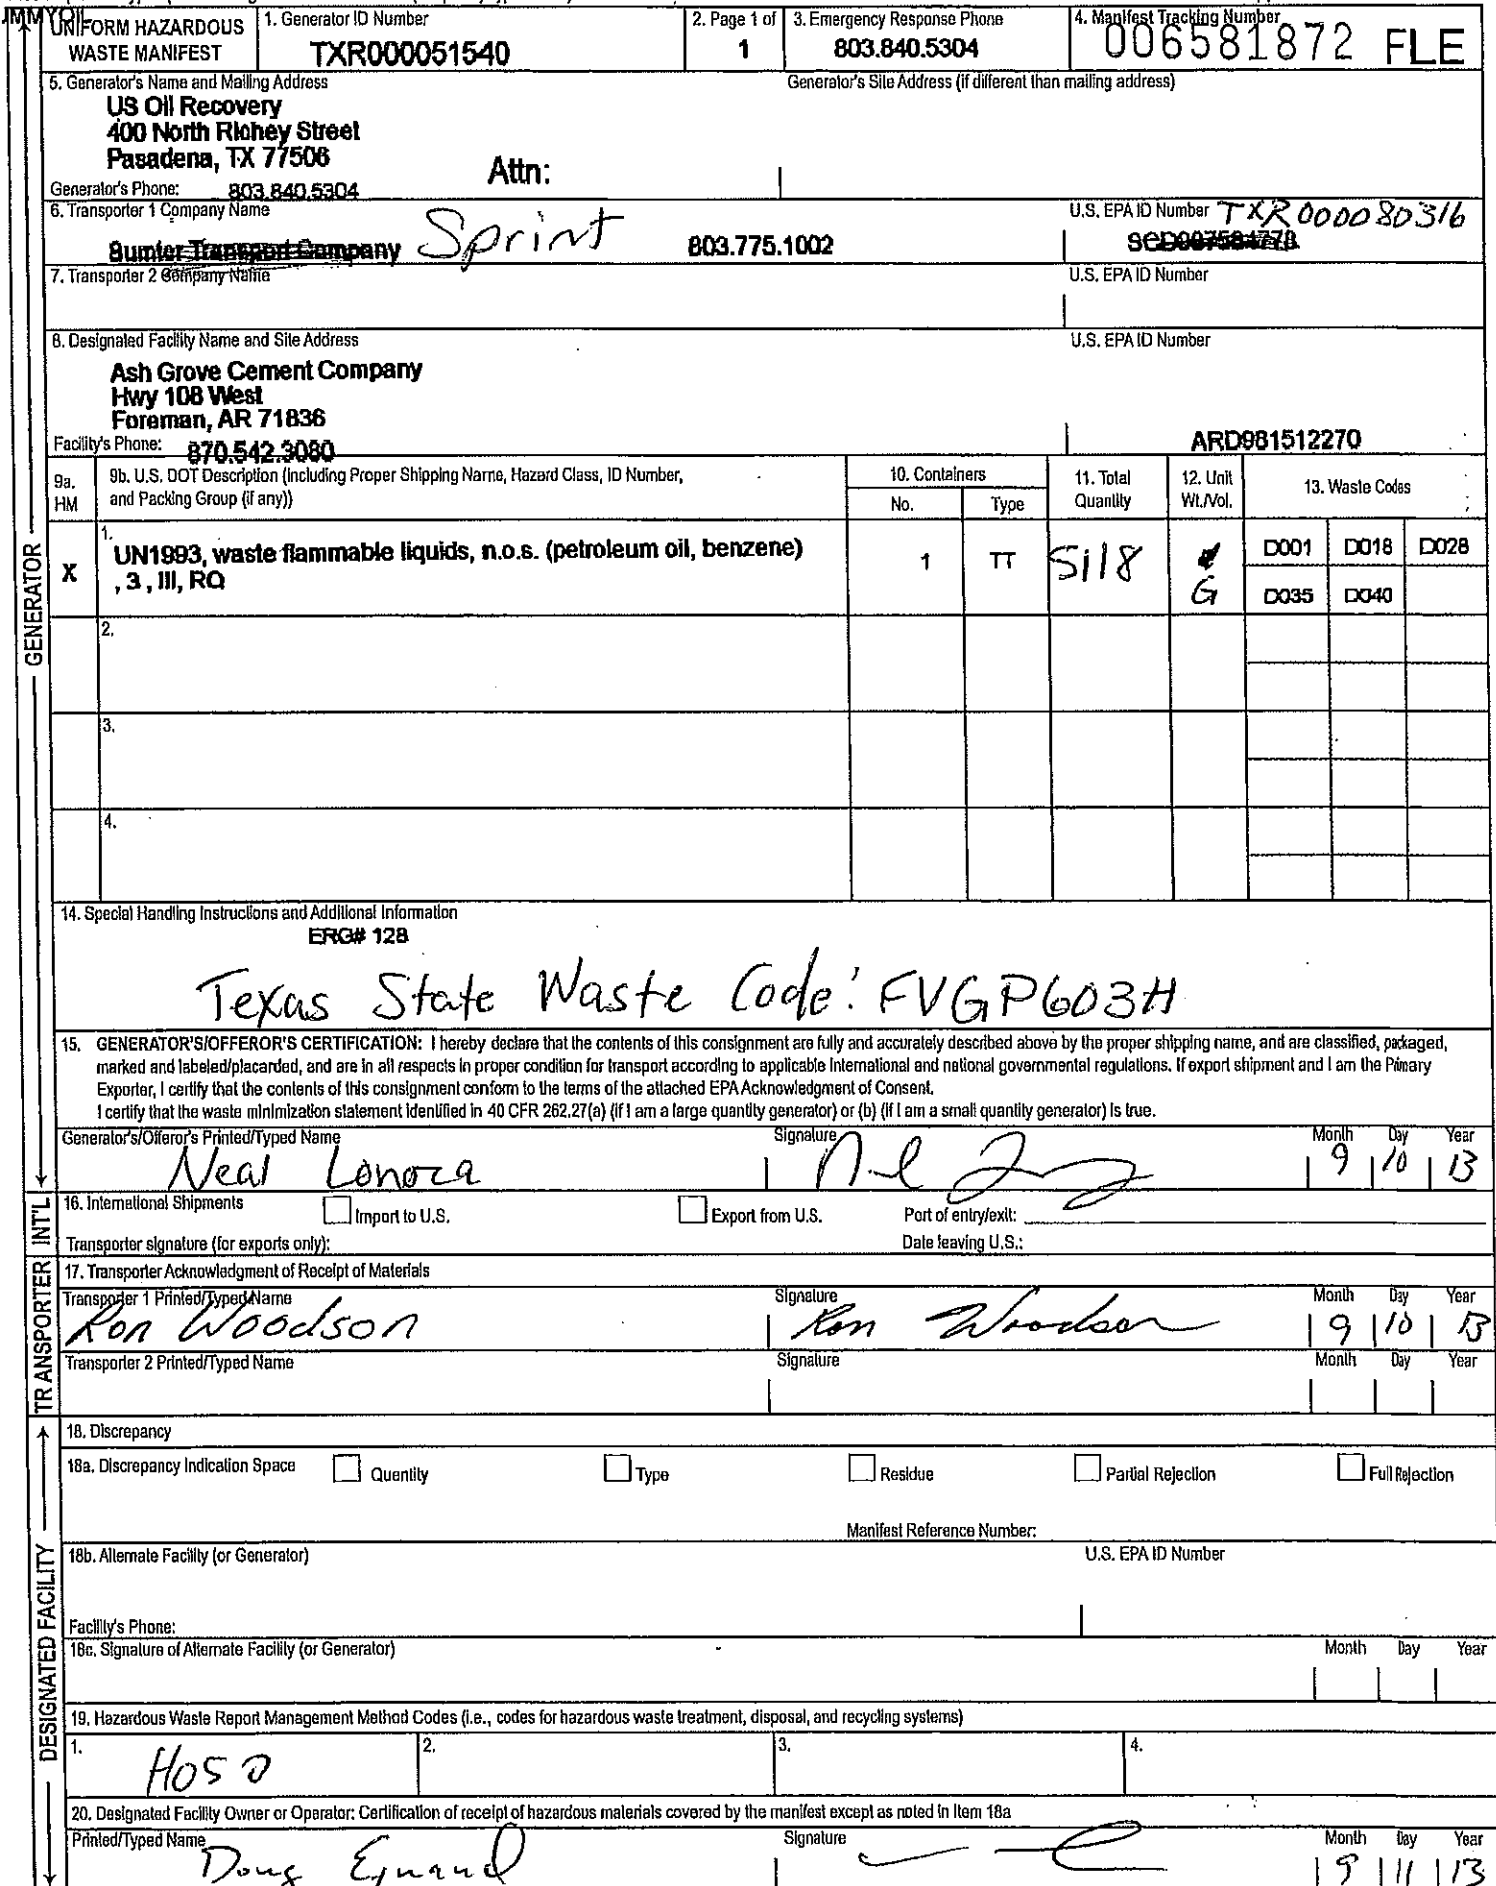 UNIFORM HAZARDOUS WASTE MANIFEST
1. Generator ID Number
TXR000051540
2. Page 1 of
1
3. Emergency Response Phone
803.840.5304
4. Manifest Tracking Number
006581872 FLE
5. Generator's Name and Mailing Address
Generator's Site Address (if different than mailing address)
US Oil Recovery
400 North Richey Street
Pasadena, TX 77506
Attn:
Generator's Phone: 803.840.5304
6. Transporter 1 Company Name
Sumter Transport Company Sprint 803.775.1002
U.S. EPA ID Number TXR000080316
7. Transporter 2 Company Name
U.S. EPA ID Number
8. Designated Facility Name and Site Address
U.S. EPA ID Number
Ash Grove Cement Company
Hwy 108 West
Foreman, AR 71836
Facility's Phone: 870.542.3080
ARD981512270
9a. HM
9b. U.S. DOT Description (including Proper Shipping Name, Hazard Class, ID Number,
and Packing Group (if any))
10. Containers
No. Type
11. Total Quantity
12. Unit Wt./Vol.
13. Waste Codes
X
1. UN1993, waste flammable liquids, n.o.s. (petroleum oil, benzene)
, 3 , III, RQ
1 TT 5118 G
D001 D018 D028
D035 D040
2.
3.
4.
14. Special Handling Instructions and Additional Information
ERG# 128
Texas State Waste Code: FVGP603H
15. GENERATOR'S/OFFEROR'S CERTIFICATION: I hereby declare that the contents of this consignment are fully and accurately described above by the proper shipping name, and are classified, packaged,
marked and labeled/placarded, and are in all respects in proper condition for transport according to applicable international and national governmental regulations. If export shipment and I am the Primary
Exporter, I certify that the contents of this consignment conform to the terms of the attached EPA Acknowledgment of Consent.
I certify that the waste minimization statement identified in 40 CFR 262.27(a) (if I am a large quantity generator) or (b) (if I am a small quantity generator) is true.
Generator's/Offeror's Printed/Typed Name
Signature
Month Day Year
Neal
9 10 13
16. International Shipments
Import to U.S.
Export from U.S.
Port of entry/exit:
Transporter signature (for exports only):
Date leaving U.S.:
17. Transporter Acknowledgment of Receipt of Materials
Transporter 1 Printed/Typed Name
Signature
Month Day Year
Ron Woodson
Ron Woodson
9 10 13
Transporter 2 Printed/Typed Name
Signature
Month Day Year
18. Discrepancy
18a. Discrepancy Indication Space
Quantity
Type
Residue
Partial Rejection
Full Rejection
Manifest Reference Number:
18b. Alternate Facility (or Generator)
U.S. EPA ID Number
Facility's Phone:
18c. Signature of Alternate Facility (or Generator)
Month Day Year
19. Hazardous Waste Report Management Method Codes (i.e., codes for hazardous waste treatment, disposal, and recycling systems)
1. H050
2.
3.
4.
20. Designated Facility Owner or Operator: Certification of receipt of hazardous materials covered by the manifest except as noted in Item 18a
Printed/Typed Name
Signature
Month Day Year
Doug
9 11 13
GENERATOR
INT'L
TRANSPORTER
DESIGNATED FACILITY